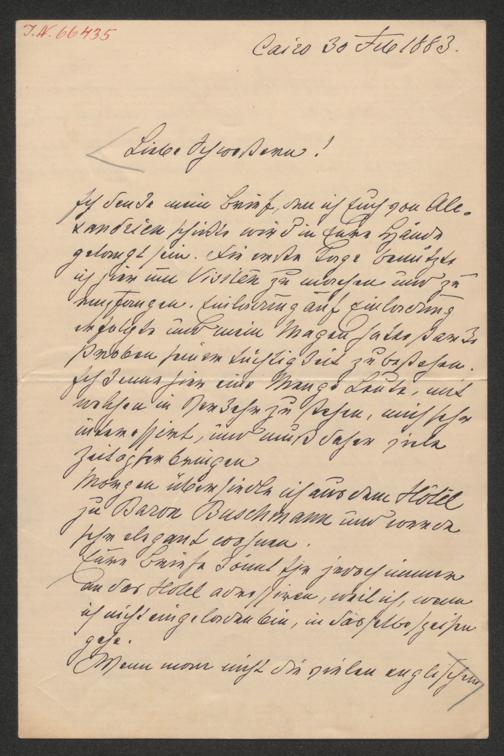 I.N. 66435
Cairo 30 Feb 1883.
Liebe Schwestern!
Ich denke mein Brief, den ich Euch von Ale-
xandrien schickte wird in Eure Hände
gelangt sein. Die ersten Tage benützte
ich hier um Visiten zu machen und zu
empfangen. Einladung auf Einladung
erfolgte und mein Magen hatte starke
Proben seiner Tüchtigkeit zu bestehen.
Ich kenne hier eine Menge Leute, mit
welchen in Verkehr zu stehen, mich sehr
interessirt, und muß daher viele
Zeitopfer bringen
Morgen übersiedle ich aus dem Hôtel
zu Baron Buschmann und werde
sehr elegant wohnen.
Eure Briefe könnt Ihr jedoch immer
an das Hôtel adressiren, weil ich, wenn
ich nicht eingeladen bin, in dasselbe speisen
gehe.
Wenn man nicht die vielen englischen